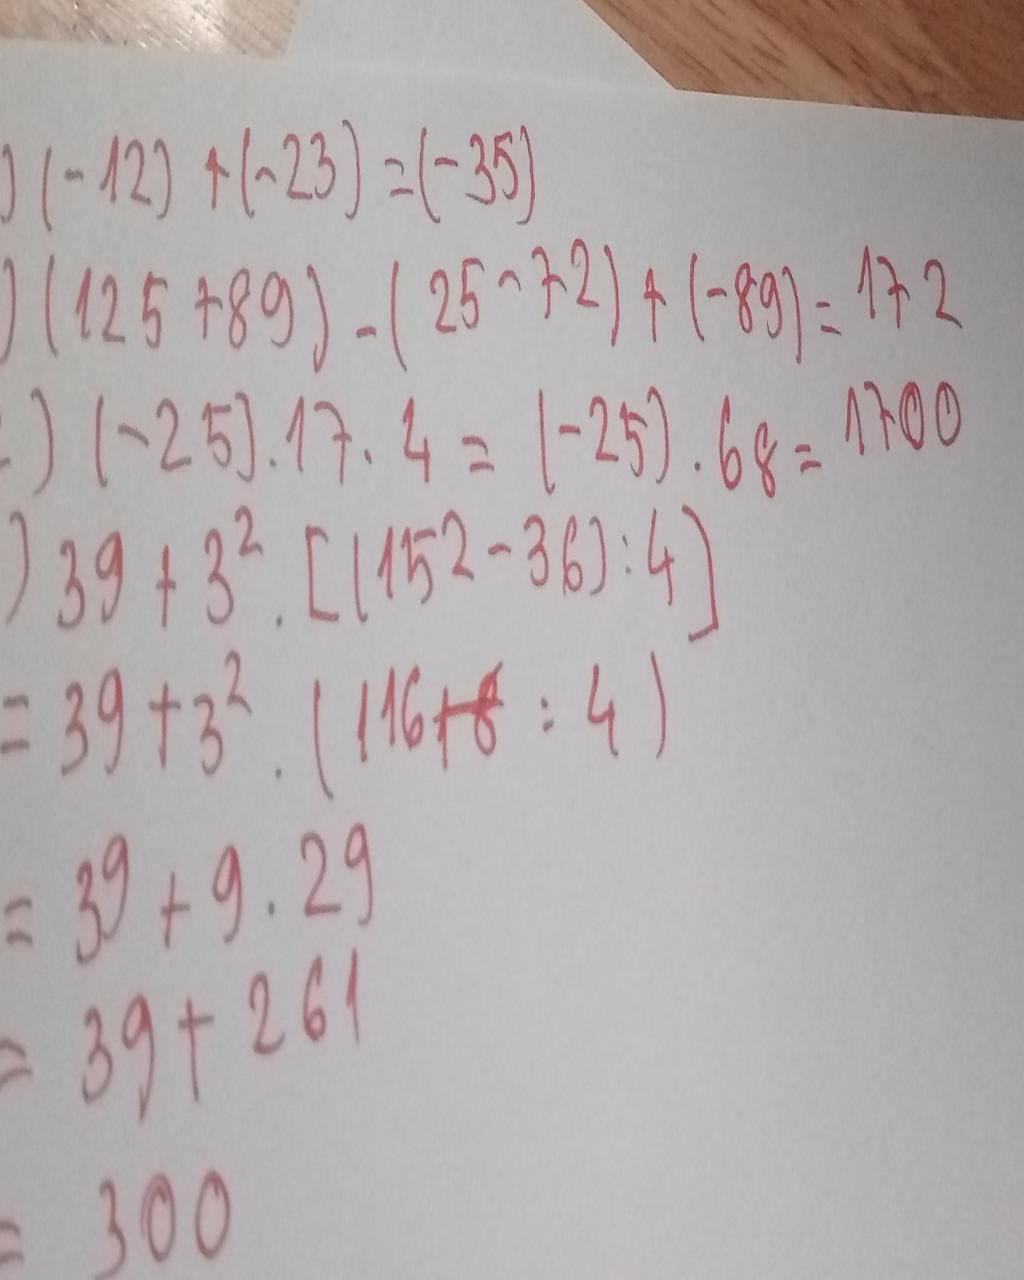 ) (-12) + (-23) = (-35)
) (125 + 89) - (25 - 72) + (-89) = 172
) (-25) . 17 . 4 = (-25) . 68 = 1700
) 39 + 3² . [(152 - 36) : 4]
= 39 + 3² . (116 : 4)
= 39 + 9 . 29
= 39 + 261
= 300